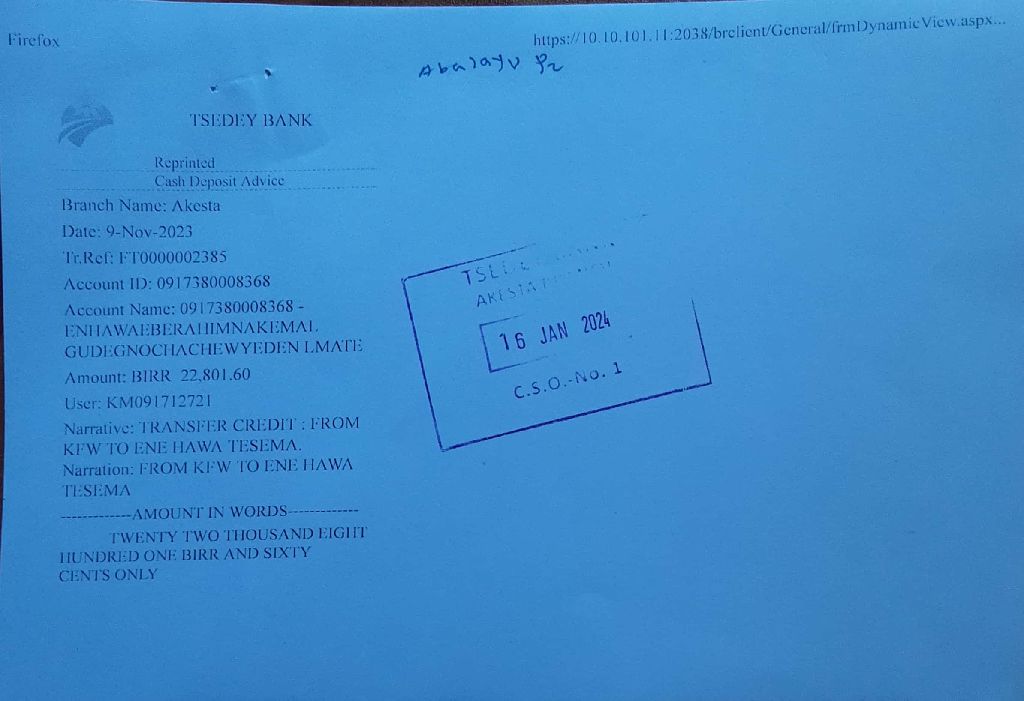 Firefox
https://10.10.101.11:2038/brclient/General/frmDynamicView.aspx...
Abalayu
TSEDEY BANK
Reprinted
Cash Deposit Advice
Branch Name: Akesta
Date: 9-Nov-2023
Tr.Ref: FT0000002385
Account ID: 0917380008368
Account Name: 0917380008368 -
ENHAWAEBERAHIMNAKEMAL
GUDEGNOCHACHEWYEDEN LMATE
Amount: BIRR 22,801.60
User: KM091712721
Narrative: TRANSFER CREDIT : FROM
KFW TO ENE HAWA TESEMA.
Narration: FROM KFW TO ENE HAWA
TESEMA
-------------AMOUNT IN WORDS-------------
TWENTY TWO THOUSAND EIGHT
HUNDRED ONE BIRR AND SIXTY
CENTS ONLY
AKESTA
16 JAN 2024
C.S.O.-No. 1